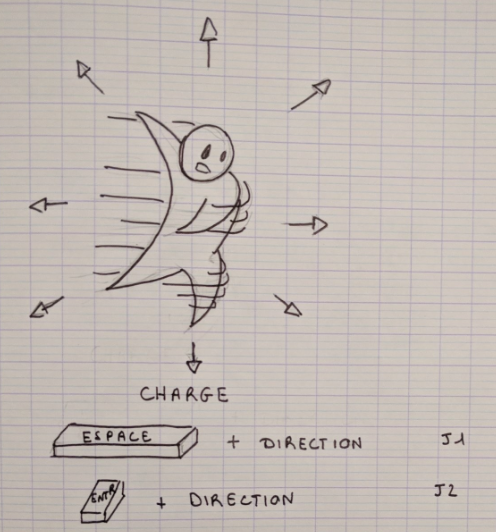 CHARGE
ESPACE + DIRECTION J1
ENTR + DIRECTION J2